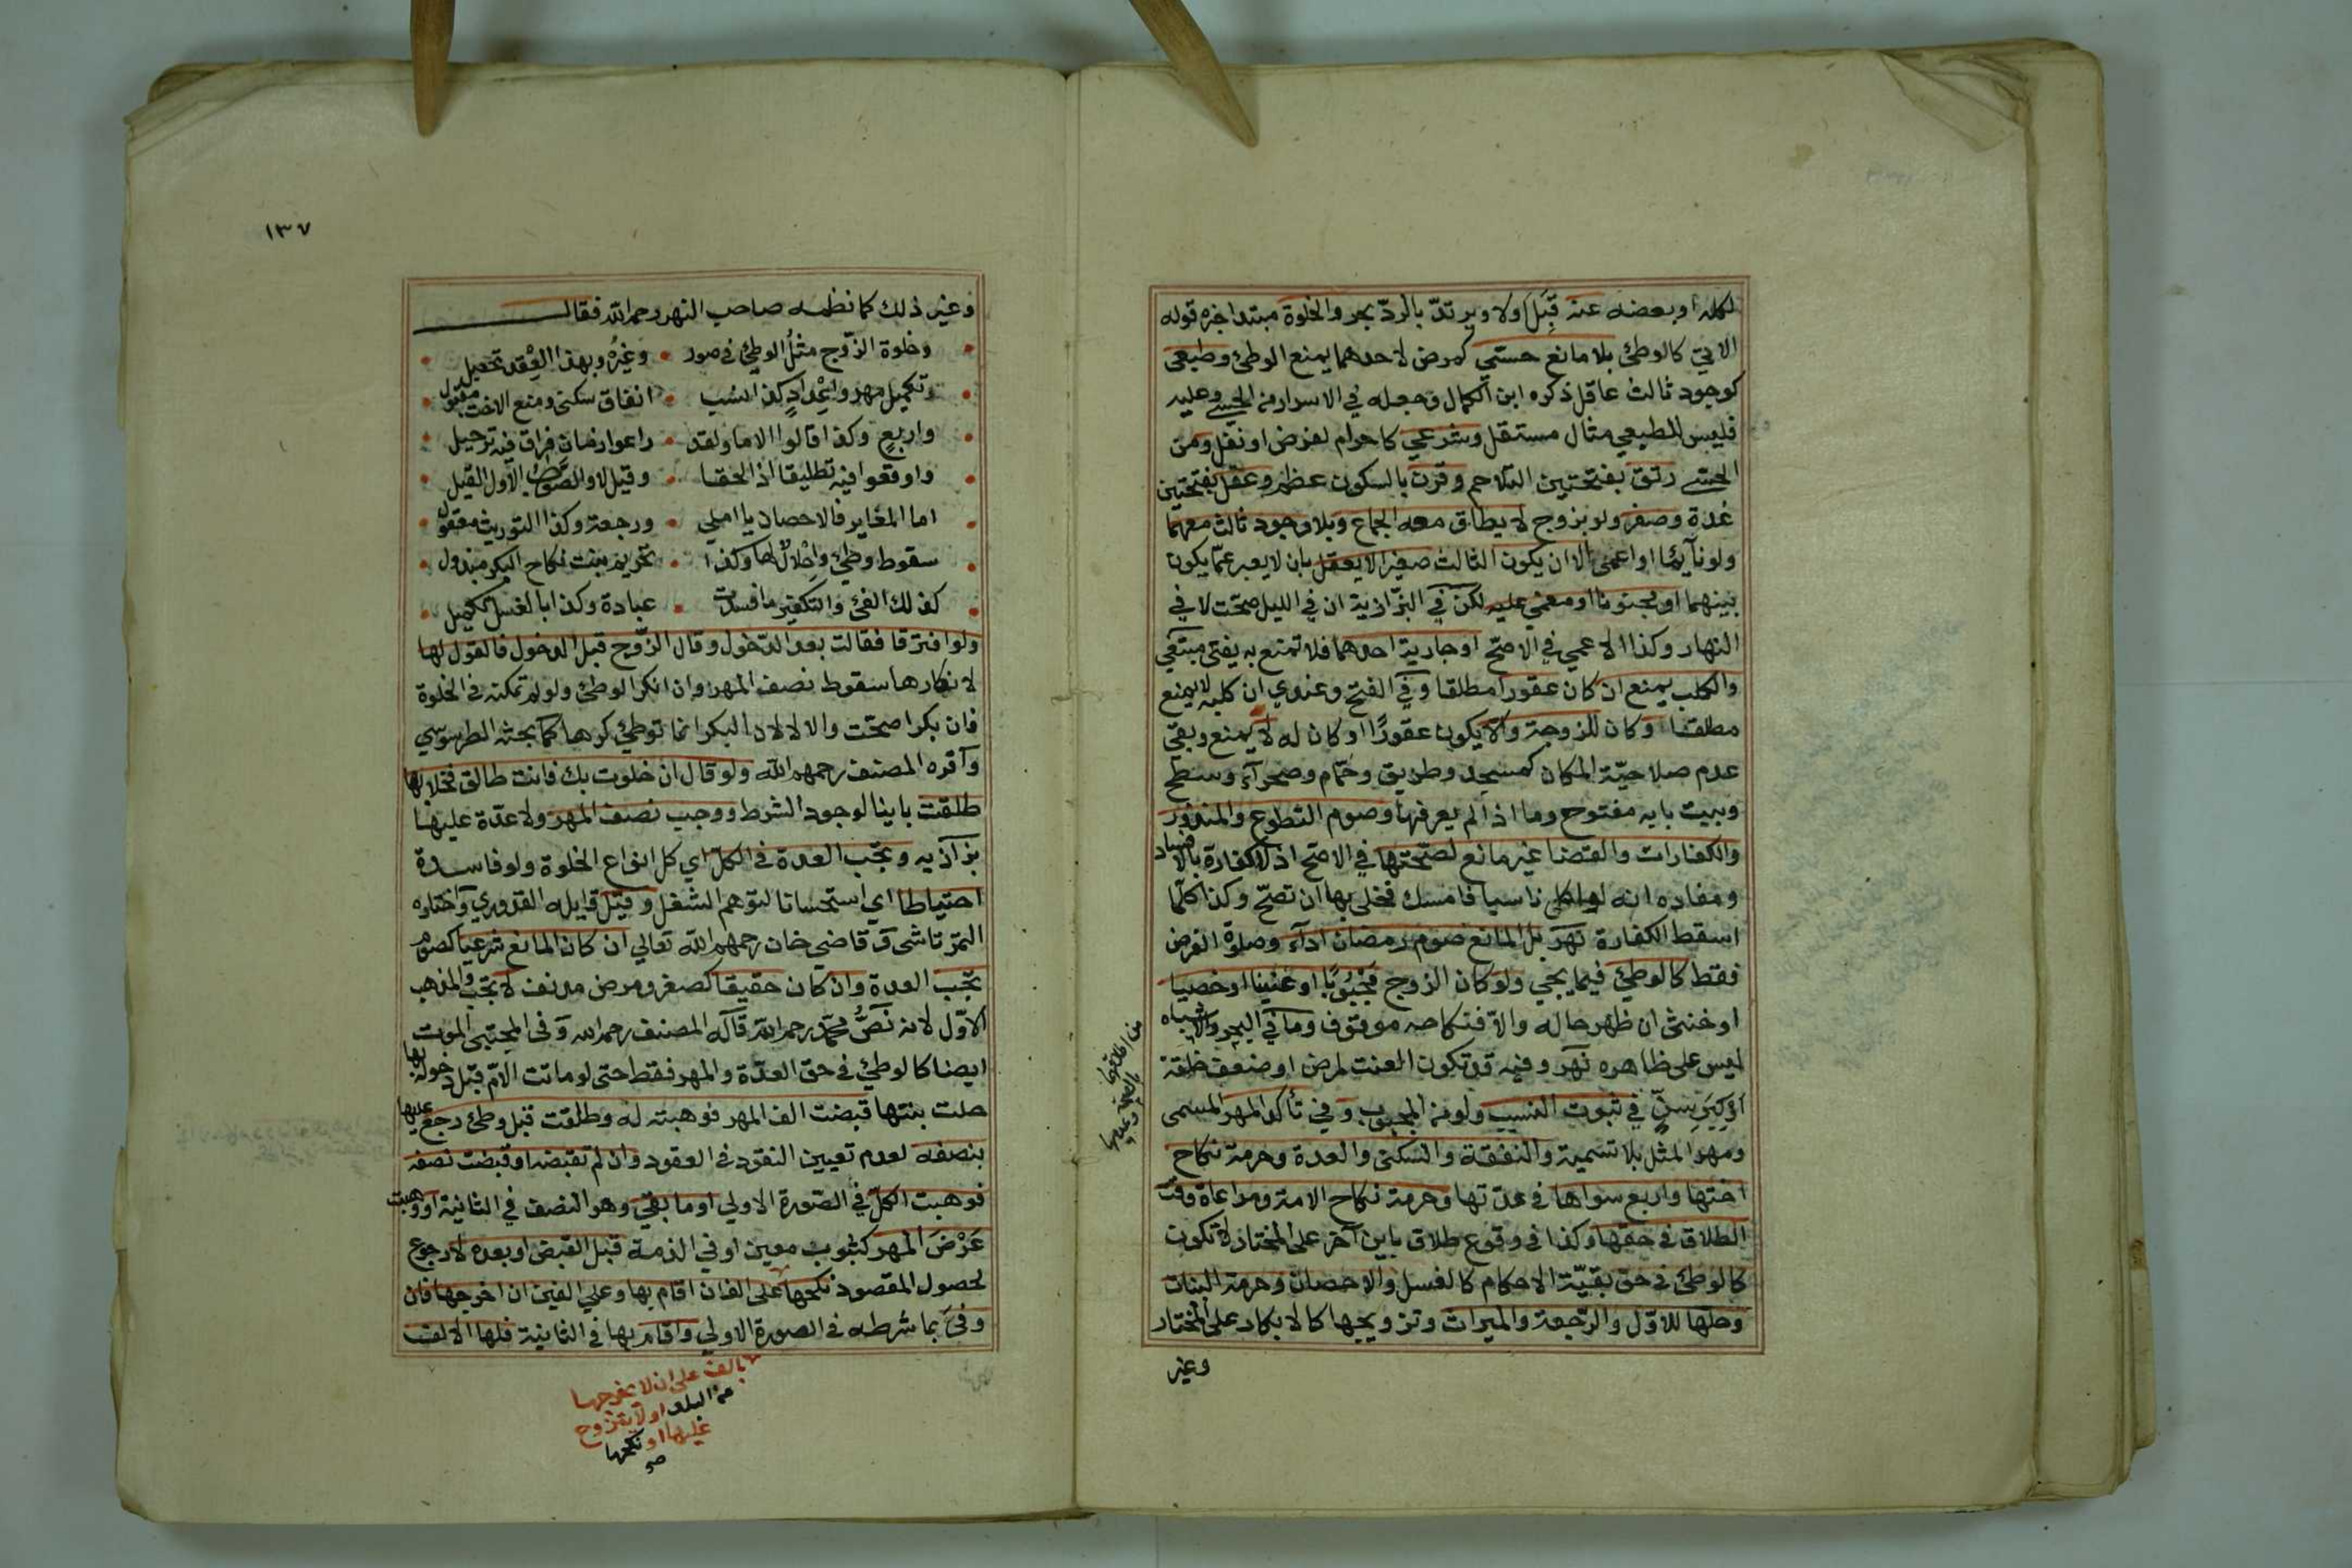 لكله او بعضه عنه قبل ولا ويرتد بالرد بحر والخلوة مبتدا خبره قوله
الاتي كالوطئ بلا مانع حسي كمرض لاحدهما يمنع الوطئ وطبعي
كوجود ثالث عاقل ذكره ابن الكمال وجعله في الاسرار من الحسي وعليه
فليس للطبعي مثال مستقل وشرعي كاحرام لفرض او نفل ومن
الحسي رتق بفتحتين التلاحم وقرن بالسكون عظم وعفل بفتحتين
غدة وصغر ولو بزوج لا يطاق معه الجماع وبلا وجود ثالث معهما
ولو نآيئما او اعمى الا ان يكون الثالث صغيرا لا يعقل بان لا يعبر عمّا يكون
بينهما او مجنونا او مغمي عليه لكن في البزازية ان في الليل صحت لا في
النهار وكذا الاعمي في الاصح او جارية احدهما فلا تمنع به يفتى مبتغى
والكلب يمنع ان كان عقورا مطلقا وفي الفتح وعندي ان كلبه لا يمنع
مطلقا او كان للزوجة والا يكون عقورًا او كان له لا يمنع وبقي
عدم صلاحيّة المكان كمسجد وطريق وحمّام وصحرآء وسطح
وبيت بابه مفتوح وما اذا لم يعرفها وصوم التطوع والمنذور
والكفارات والقضا غير مانع لصحتها في الاصح اذ لا كفارة بالافساد
ومفاده انه لو اكل ناسيا فامسك فخلى بها ان تصحّ وكذا كلّما
اسقط الكفارة نهر بل المانع صوم رمضان ادآء وصلوة الفرض
فقط كالوطئ فيما يجي ولو كان الزوج مجبوبًا او عنينا او خصيا
او خنثى ان ظهر حاله والّا فنكاحه موقوف وما في البحر والاشباه
ليس على ظاهره نهر وفيه قد تكون العنت لمرض او ضعف خلقة
او كبر سنّ في ثبوت النسب ولو من المجبوب وفي تأكد المهر المسمى
ومهر المثل بلا تسمية والنفقة والسكنى والعدة وحرمة نكاح
اختها واربع سواها في عدّتها وحرمة نكاح الامة ومراعاة وقت
الطلاق في حقها وكذا في وقوع طلاق باين آخر على المختار لا تكون
كالوطئ في حق بقيّة الاحكام كالغسل والاحصان وحرمة البنات
وحلها للاوّل والرّجعة والميراث وتزويجها كالابكار على المختار
وغير
١٣٧
وغير ذلك كما نظمه صاحب النهر رحمه الله فقال
وخلوة الزّوج مثل الوطئ في صور • وغيره وبهذا العقد تحصيل
وتكميل مهر واعداد كذا نسب • انفاق سكنى ومنع الاخت مقبول
واربع وكذا قالوا الاما ولقد • راعوا زمان فراق فيه ترحيل
واوقعوا فيه تطليقا اذا لحقا • وقيل لا والصواب الاول القيل
اما المغاير فالاحصان يا املي • ورجعة وكذا التوريث معقول
سقوط وطئ واحلال لها وكذا • تحريم بنت نكاح البكر مبذول
كذلك الفئ والتكفير ما فسدت • عبادة وكذا بالغسل تكميل
ولو افترقا فقالت بعد الدّخول وقال الزّوج قبل الدخول فالقول لها
لانكارها سقوط نصف المهر وان انكر الوطئ ولو لم تمكنه في الخلوة
فان بكرا صحّت والا لا لان البكر انما توطئ كرها كما بحثه الطرسوسي
واقره المصنف رحمهم الله ولو قال ان خلوت بك فانت طالق فخلا بها
طلقت باينا لوجود الشرط ووجب نصف المهر ولا عدّة عليها
بزازيه وتجب العدة في الكل اي كل انواع الخلوة ولو فاسدة
احتياطا اي استحسانا لتوهم الشغل وقيل قايله القدوري واختاره
التمرتاشى وقاضى خان رحمهم الله تعالي ان كان المانع شرعيا كصوم
تجب العدة وان كان حقيقيا كصغر ومرض مدنف لا تجب والمذهب
الاوّل لانه نصّ محمّد رحمه الله قاله المصنف رحمه الله وفي المجتبى الموت
ايضا كالوطئ في حق العدّة والمهر فقط حتى لو ماتت الامّ قبل دخوله بها
حلت بنتها قبضت الف المهر فوهبته له وطلقت قبل وطئ رجع عليها
بنصفه لعدم تعيين النقود في العقود وان لم تقبضه او قبضت نصفه
فوهبت الكلّ في الصّورة الاولي او ما بقي وهو النصف في الثانية او وهبت
عرض المهر كثوب معين او في الذمة قبل القبض او بعده لا رجوع
لحصول المقصود نكحها على الف ان اقام بها وعلي الفين ان اخرجها فان
وفى بما شرطه في الصورة الاولي واقام بها في الثانية فلها الالف
بالف على ان لا يخرجها
من البلد او لا يتزوج
عليها او نكحها
صح